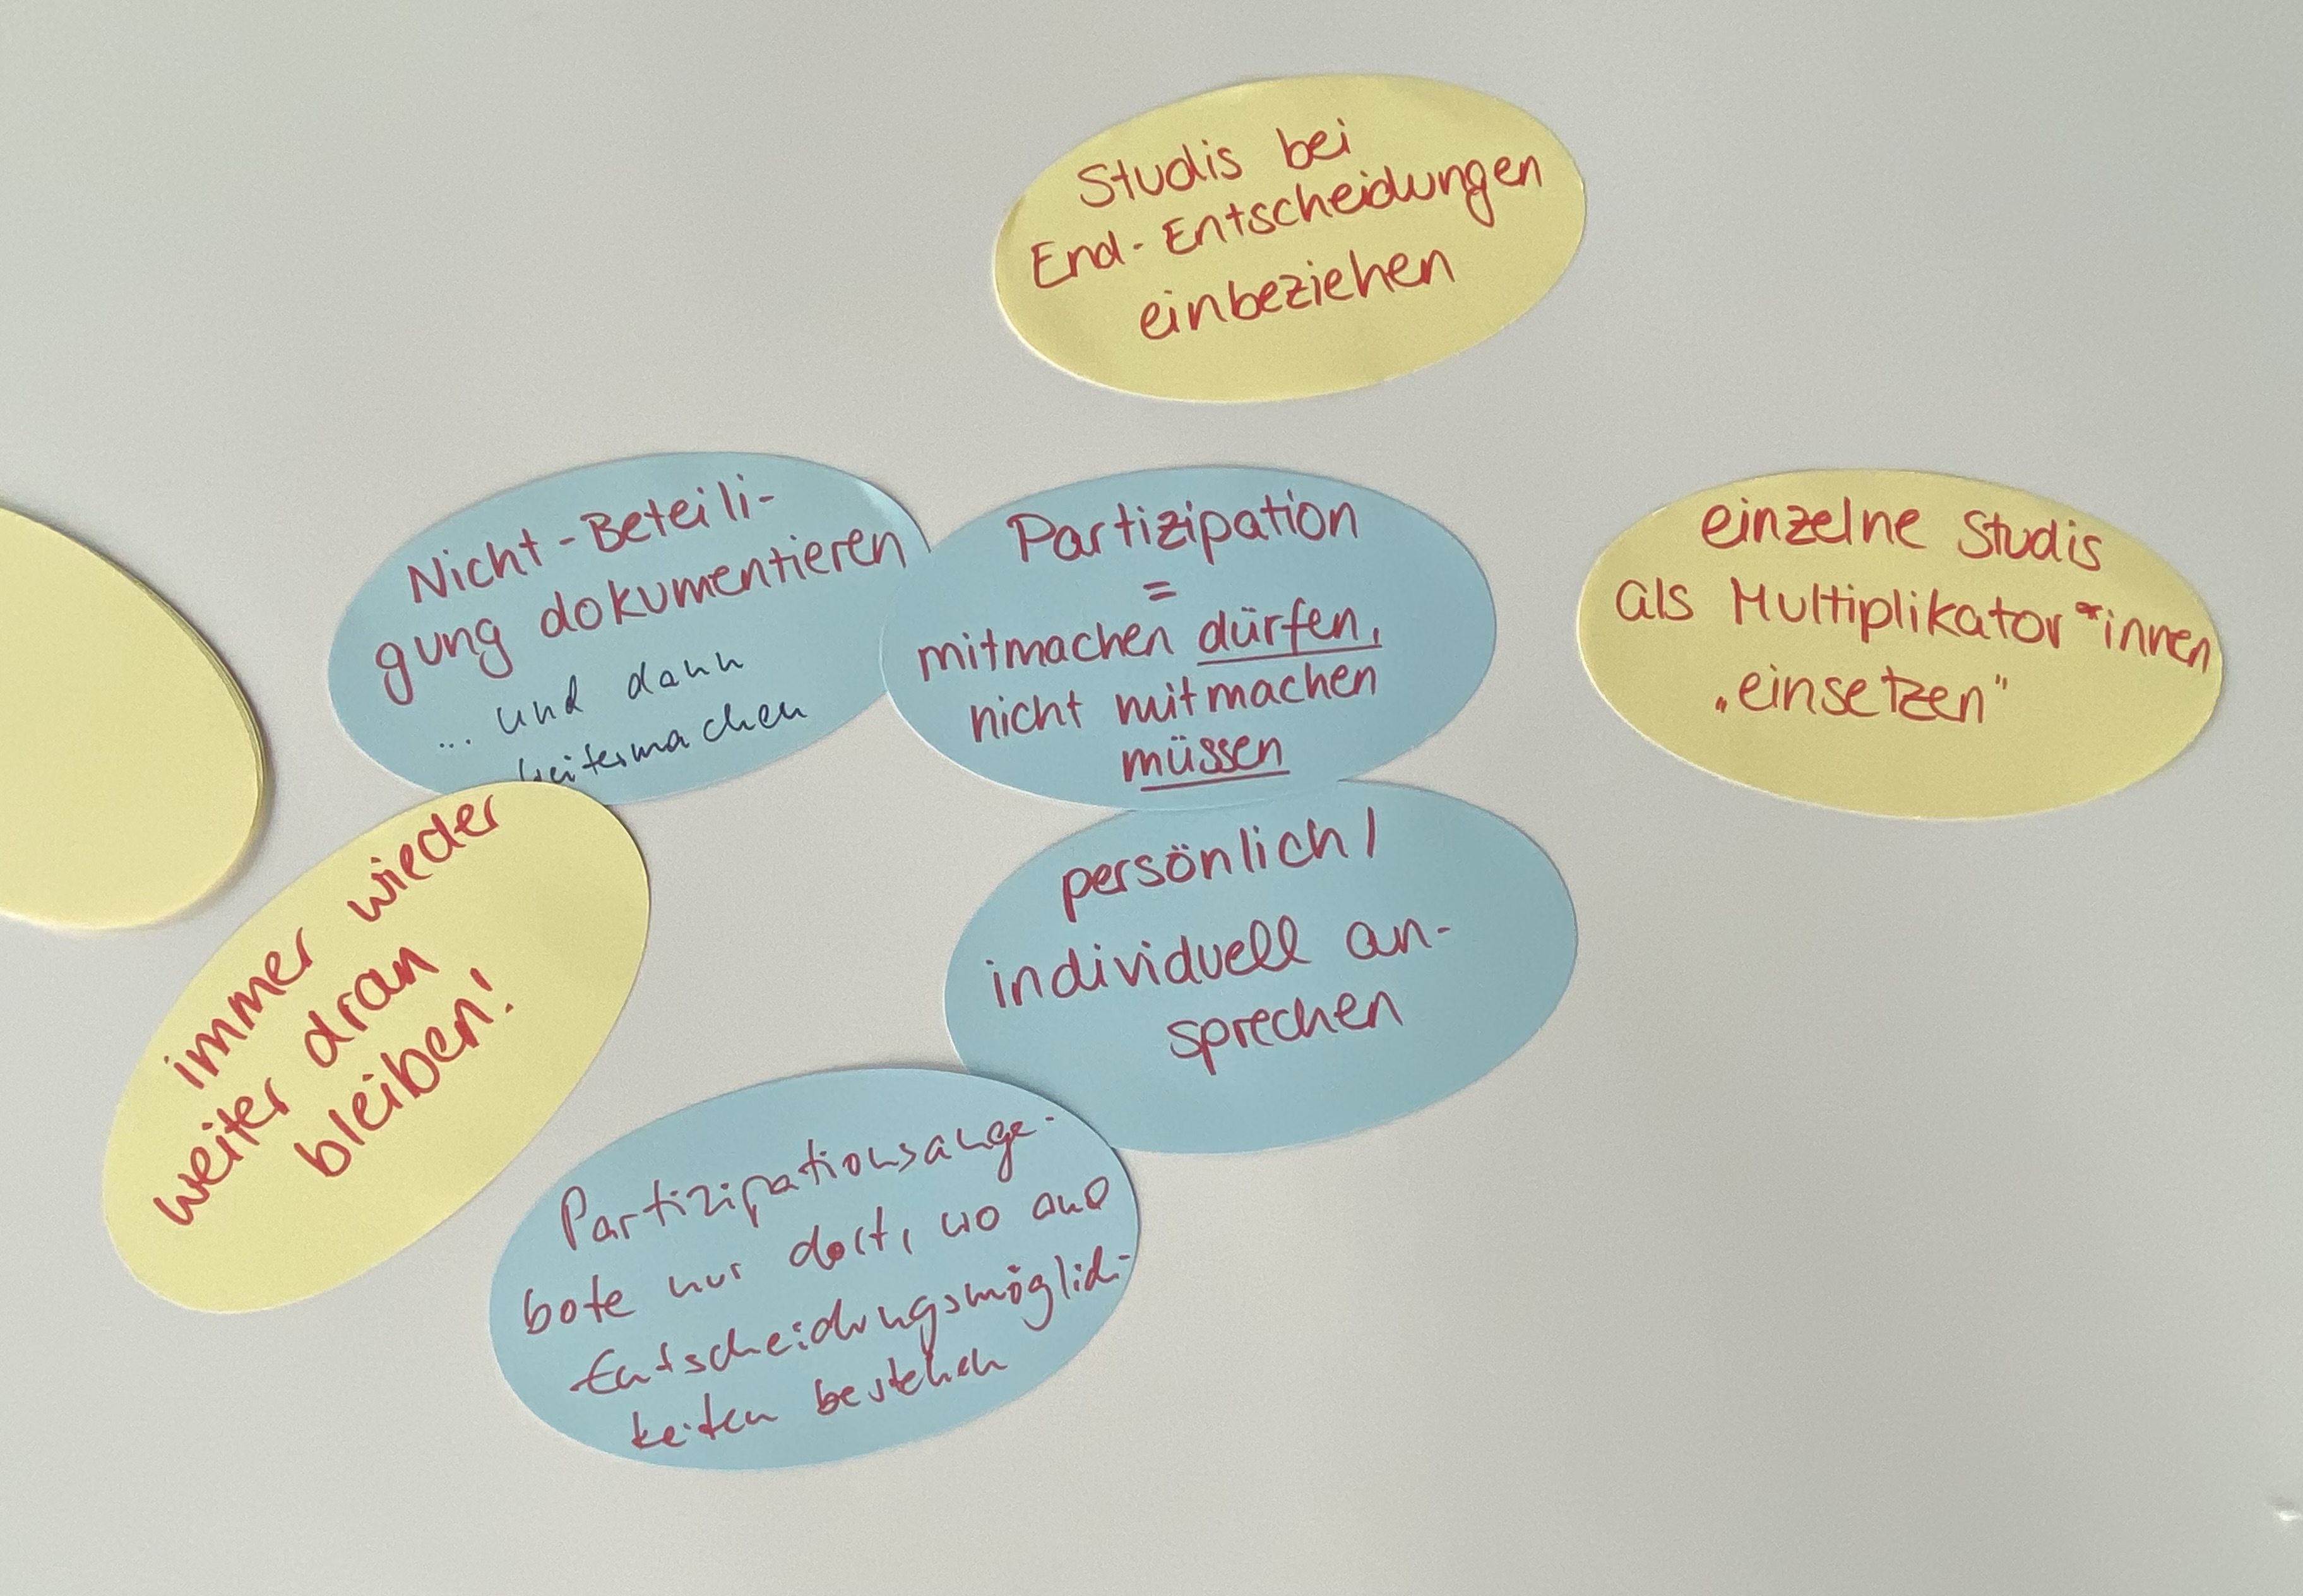 Studis bei
End-Entscheidungen
einbeziehen
Nicht-Beteili-
gung dokumentieren
... und dann
weitermachen
Partizipation
=
mitmachen dürfen,
nicht mitmachen
müssen
einzelne Studis
als Multiplikator*innen
„einsetzen"
immer wieder
weiter dran
bleiben!
persönlich/
individuell an-
sprechen
Partizipationsange-
bote nur dort, wo auch
Entscheidungsmöglich-
keiten bestehen